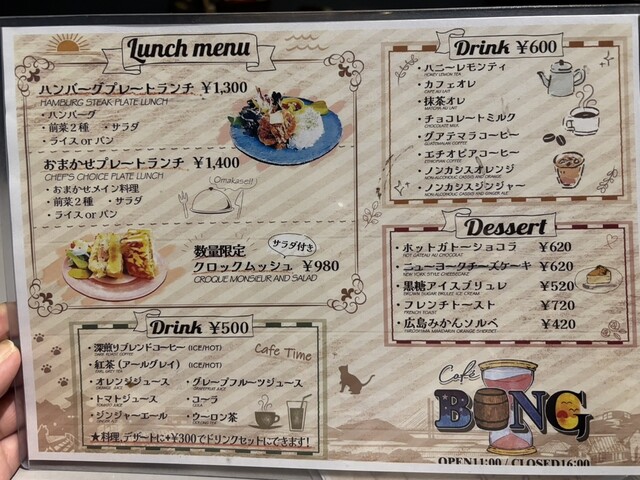 Lunch menu
ハンバーグプレートランチ ¥1,300
HAMBURG STEAK PLATE LUNCH
・ハンバーグ
・前菜２種 ・サラダ
・ライス or パン
おまかせプレートランチ ¥1,400
CHEF'S CHOICE PLATE LUNCH
・おまかせメイン料理
・前菜２種 ・サラダ
・ライス or パン
Omakase!!
数量限定
サラダ付き
クロックムッシュ ¥980
CROQUE MONSIEUR AND SALAD
Drink ¥500
・深煎りブレンドコーヒー (ICE/HOT)
DARK ROAST COFFEE
・紅茶（アールグレイ） (ICE/HOT)
EARL GREY TEA
・オレンジジュース ・グレープフルーツジュース
ORANGE JUICE GRAPEFRUIT JUICE
・トマトジュース ・コーラ
TOMATO JUICE COLA
・ジンジャーエール ・ウーロン茶
GINGER ALE OOLONG TEA
Cafe Time
★料理、デザートに+¥300でドリンクセットにできます!
Drink ¥600
・ハニーレモンティ
HONEY LEMON TEA
・カフェオレ
CAFE AU LAIT
・抹茶オレ
MATCHA AU LAIT
・チョコレートミルク
CHOCOLATE MILK
・グアテマラコーヒー
GUATEMALAN COFFEE
・エチオピアコーヒー
ETHIOPIAN COFFEE
・ノンカシスオレンジ
NON-ALCOHOLIC CASSIS AND ORANGE
・ノンカシスジンジャー
NON-ALCOHOLIC CASSIS AND GINGER ALE
Dessert
・ホットガトーショコラ ¥620
HOT GATEAU AU CHOCOLAT
・ニューヨークチーズケーキ ¥620
NEW YORK STYLE CHEESECAKE
・黒糖アイスブリュレ ¥520
BROWN SUGAR BRULEE ICE CREAM
・フレンチトースト ¥720
FRENCH TOAST
・広島みかんソルベ ¥420
HIROSHIMA MANDARIN ORANGE SHERBET
Café
BONG
OPEN11:00 / CLOSED16:00